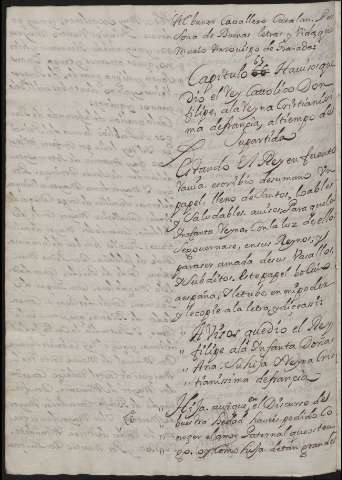 Al buen Cavallero Catalan, Per
sona de Buenas letras y vida que
murio Arzobispo de Granada:
Capitulo 65 66 Havisos que
dio el Rey Catolico Don
filipe, a la Reyna Cristianissi
ma de francia, al tiempo de
Su partida
Estando El Rey en fuente
Ravia, escribio de su mano Un
papel, lleno de Santos, loables
y Saludables, avisos, Para que la
Infanta Reyna, Con la luz de ellos
Se governase, en sus Reynos, y
para ser amada de sus Vasallos,
y Subditos. Este papel bolvio
a españa, y letube en mi poder
y le copie a la letra, y dice assi:
AVisos que dio el Rey
„ filipe a la Infanta Doña
„ Ana, Su hija Reyna Cris
„ tianissima de francia
Hija, aunque en el Discurso de
vuestra hedad haveis podido Co
noçer el amor Paternal que os ten
go, os como hija de tan grande